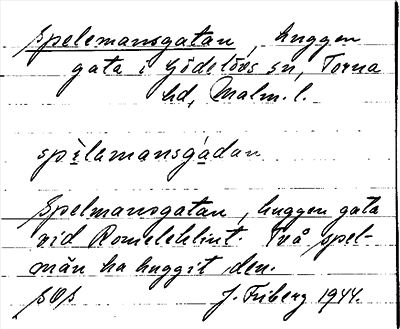 Spelemansgatan, huggen
gata i Gödelövs sn, Torna
hd, Malm. l.
spìlamansgádan
Spelmansgatan, huggen gata
vid Romeleklint. Två spel-
män ha huggit den.
J. Friberg 1944.